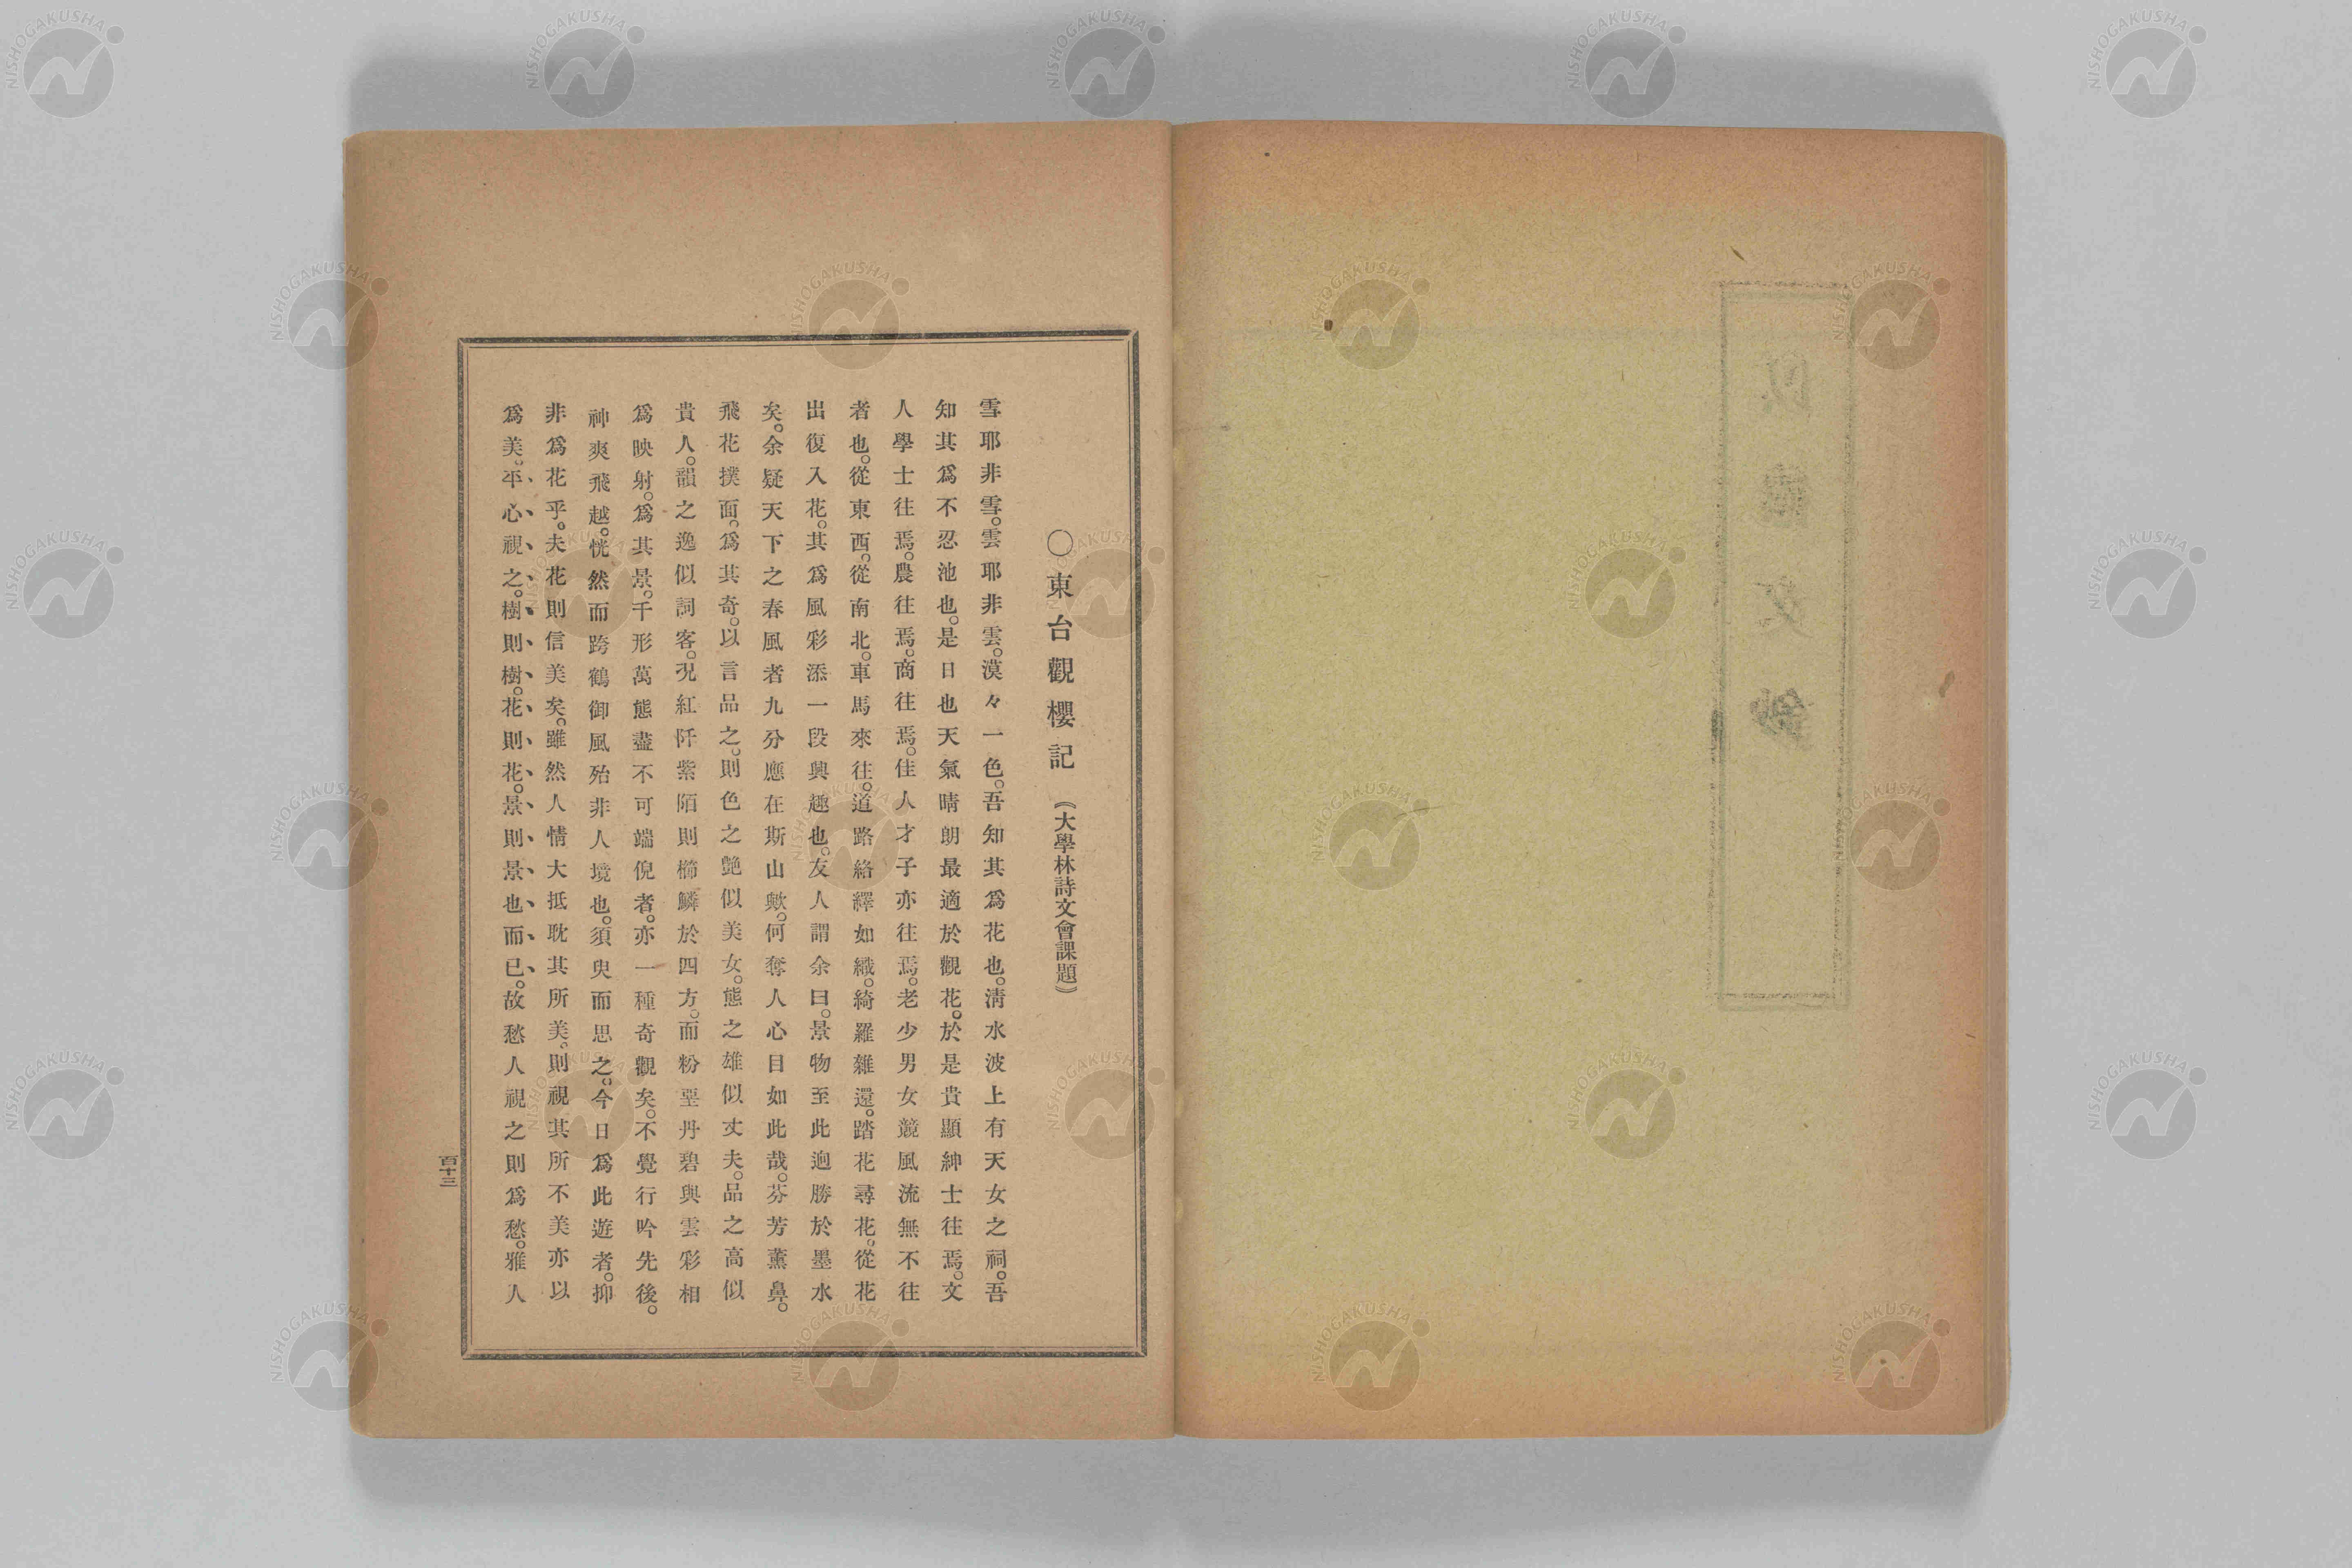 ○東台觀櫻記（大學林詩文會課題）
雪耶非雪。雲耶非雲。漠々一色。吾知其爲花也。淸水波上有天女之祠。吾
知其爲不忍池也。是日也天氣晴朗最適於觀花。於是貴顯紳士往焉。文
人學士往焉。農往焉。商往焉。佳人才子亦往焉。老少男女競風流無不往
者也。從東西。從南北。車馬來往。道路絡繹如織。綺羅雜還。踏花尋花。從花
出復入花。其爲風彩添一段興趣也。友人謂余曰。景物至此迥勝於墨水
矣。余疑天下之春風者九分應在斯山歟。何奪人心目如此哉。芬芳薰鼻。
飛花撲面。爲其奇。以言品之。則色之艶似美女。態之雄似丈夫。品之高似
貴人。韻之逸似詞客。况紅阡紫陌則櫛鱗於四方。而粉堊丹碧與雲彩相
爲映射。爲其景。千形萬態盡不可端倪者。亦一種奇觀矣。不覺行吟先後。
神爽飛越。恍然而跨鶴御風殆非人境也。須臾而思之。今日爲此遊者。抑
非爲花乎。夫花則信美矣。雖然人情大抵耽其所美。則視其所不美亦以
爲美。平心視之。樹則樹。花則花。景則景也而已。故愁人視之則爲愁。雅人
百十三
NISHOGAKUSHA